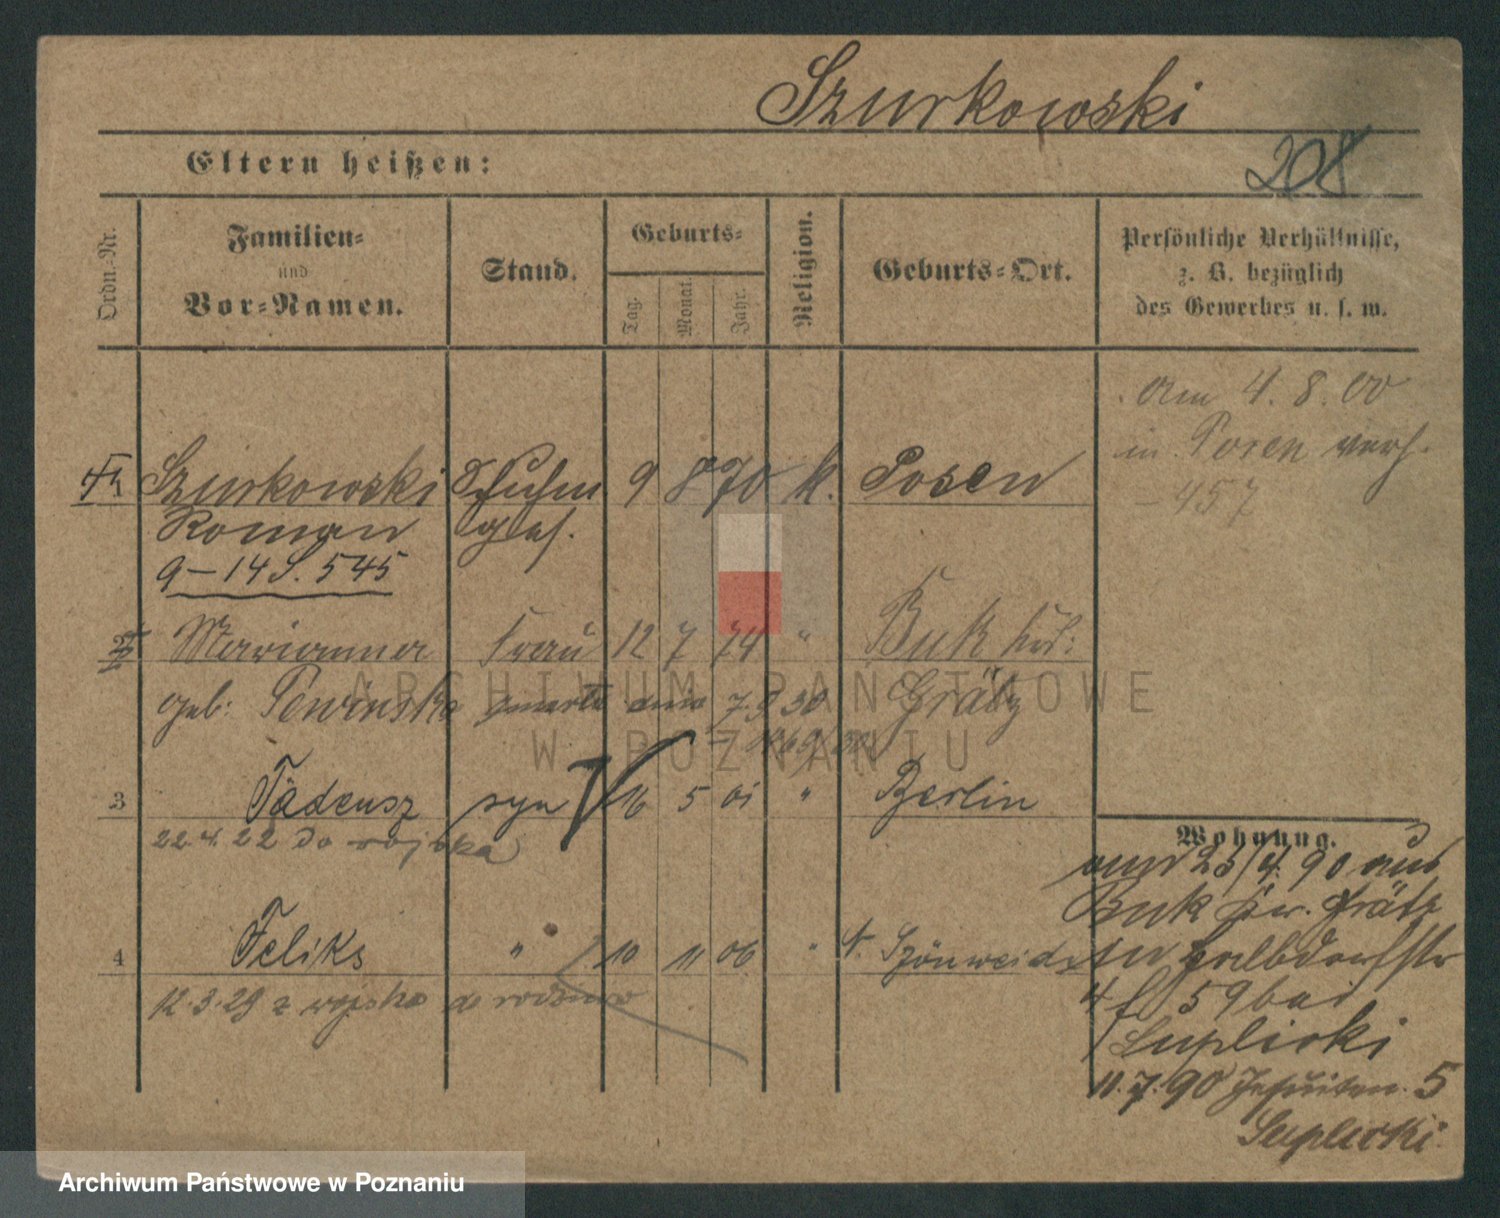 Szurkowski
Eltern heißen:
208
Ordn.-Nr.
Familien-
und
Vor-Namen.
Stand.
Geburts-
Tag.
Monat.
Jahr.
Religion.
Geburts-Ort.
Persönliche Verhältnisse,
z. B. bezüglich
des Gewerbes u. s. w.
am 4. 8. 00
in Posen verh.
- 457
Szurkowski 9 8 70 k. Posen
Roman ges.
9-14 S. 545
2 Marianna Frau 12 7 74 " Buk
geb: umarła dnia 7.9 30 Grätz
3 Tadeusz syn 16 5 01 " Berlin
22.4.22 do wojska
4 Feliks " 10 11 06 "
12.3.29 z wojska do
Wohnung.
25/4. 90 aus
Buk Kr. Grätz
4 59 bei
Suplicki
11.7.90 Jesuiten. 5
Suplicki
ARCHIWUM PAŃSTWOWE
W POZNANIU
Archiwum Państwowe w Poznaniu